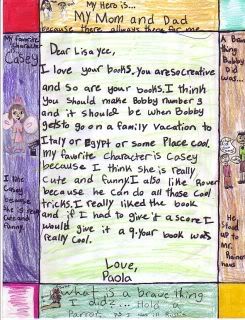 My Hero is...
My Mom and Dad
because there always there for me
My Favorite
Character
Casey
I like
Casey
because
she is really
cute and
funny.
Dear Lisa yee,
I love your books. you are so creative
and so are your books. I think
you should make Bobby number 3
and it should be when Bobby
gets to go on a family vacation to
Italy or Egypt or some Place cool.
my favorite character is Casey
because I think she is really
cute and funny. I also like Rover
because he can do all those cool
tricks. I really liked the book
and if I had to give it a score I
would give it a 9. your book was
really cool.
Love,
Paola
A Brave
thing
Bobby
Did was...
He
Stood
up to
mr.
what is a brave thing
I did?... Hold a
Parrot